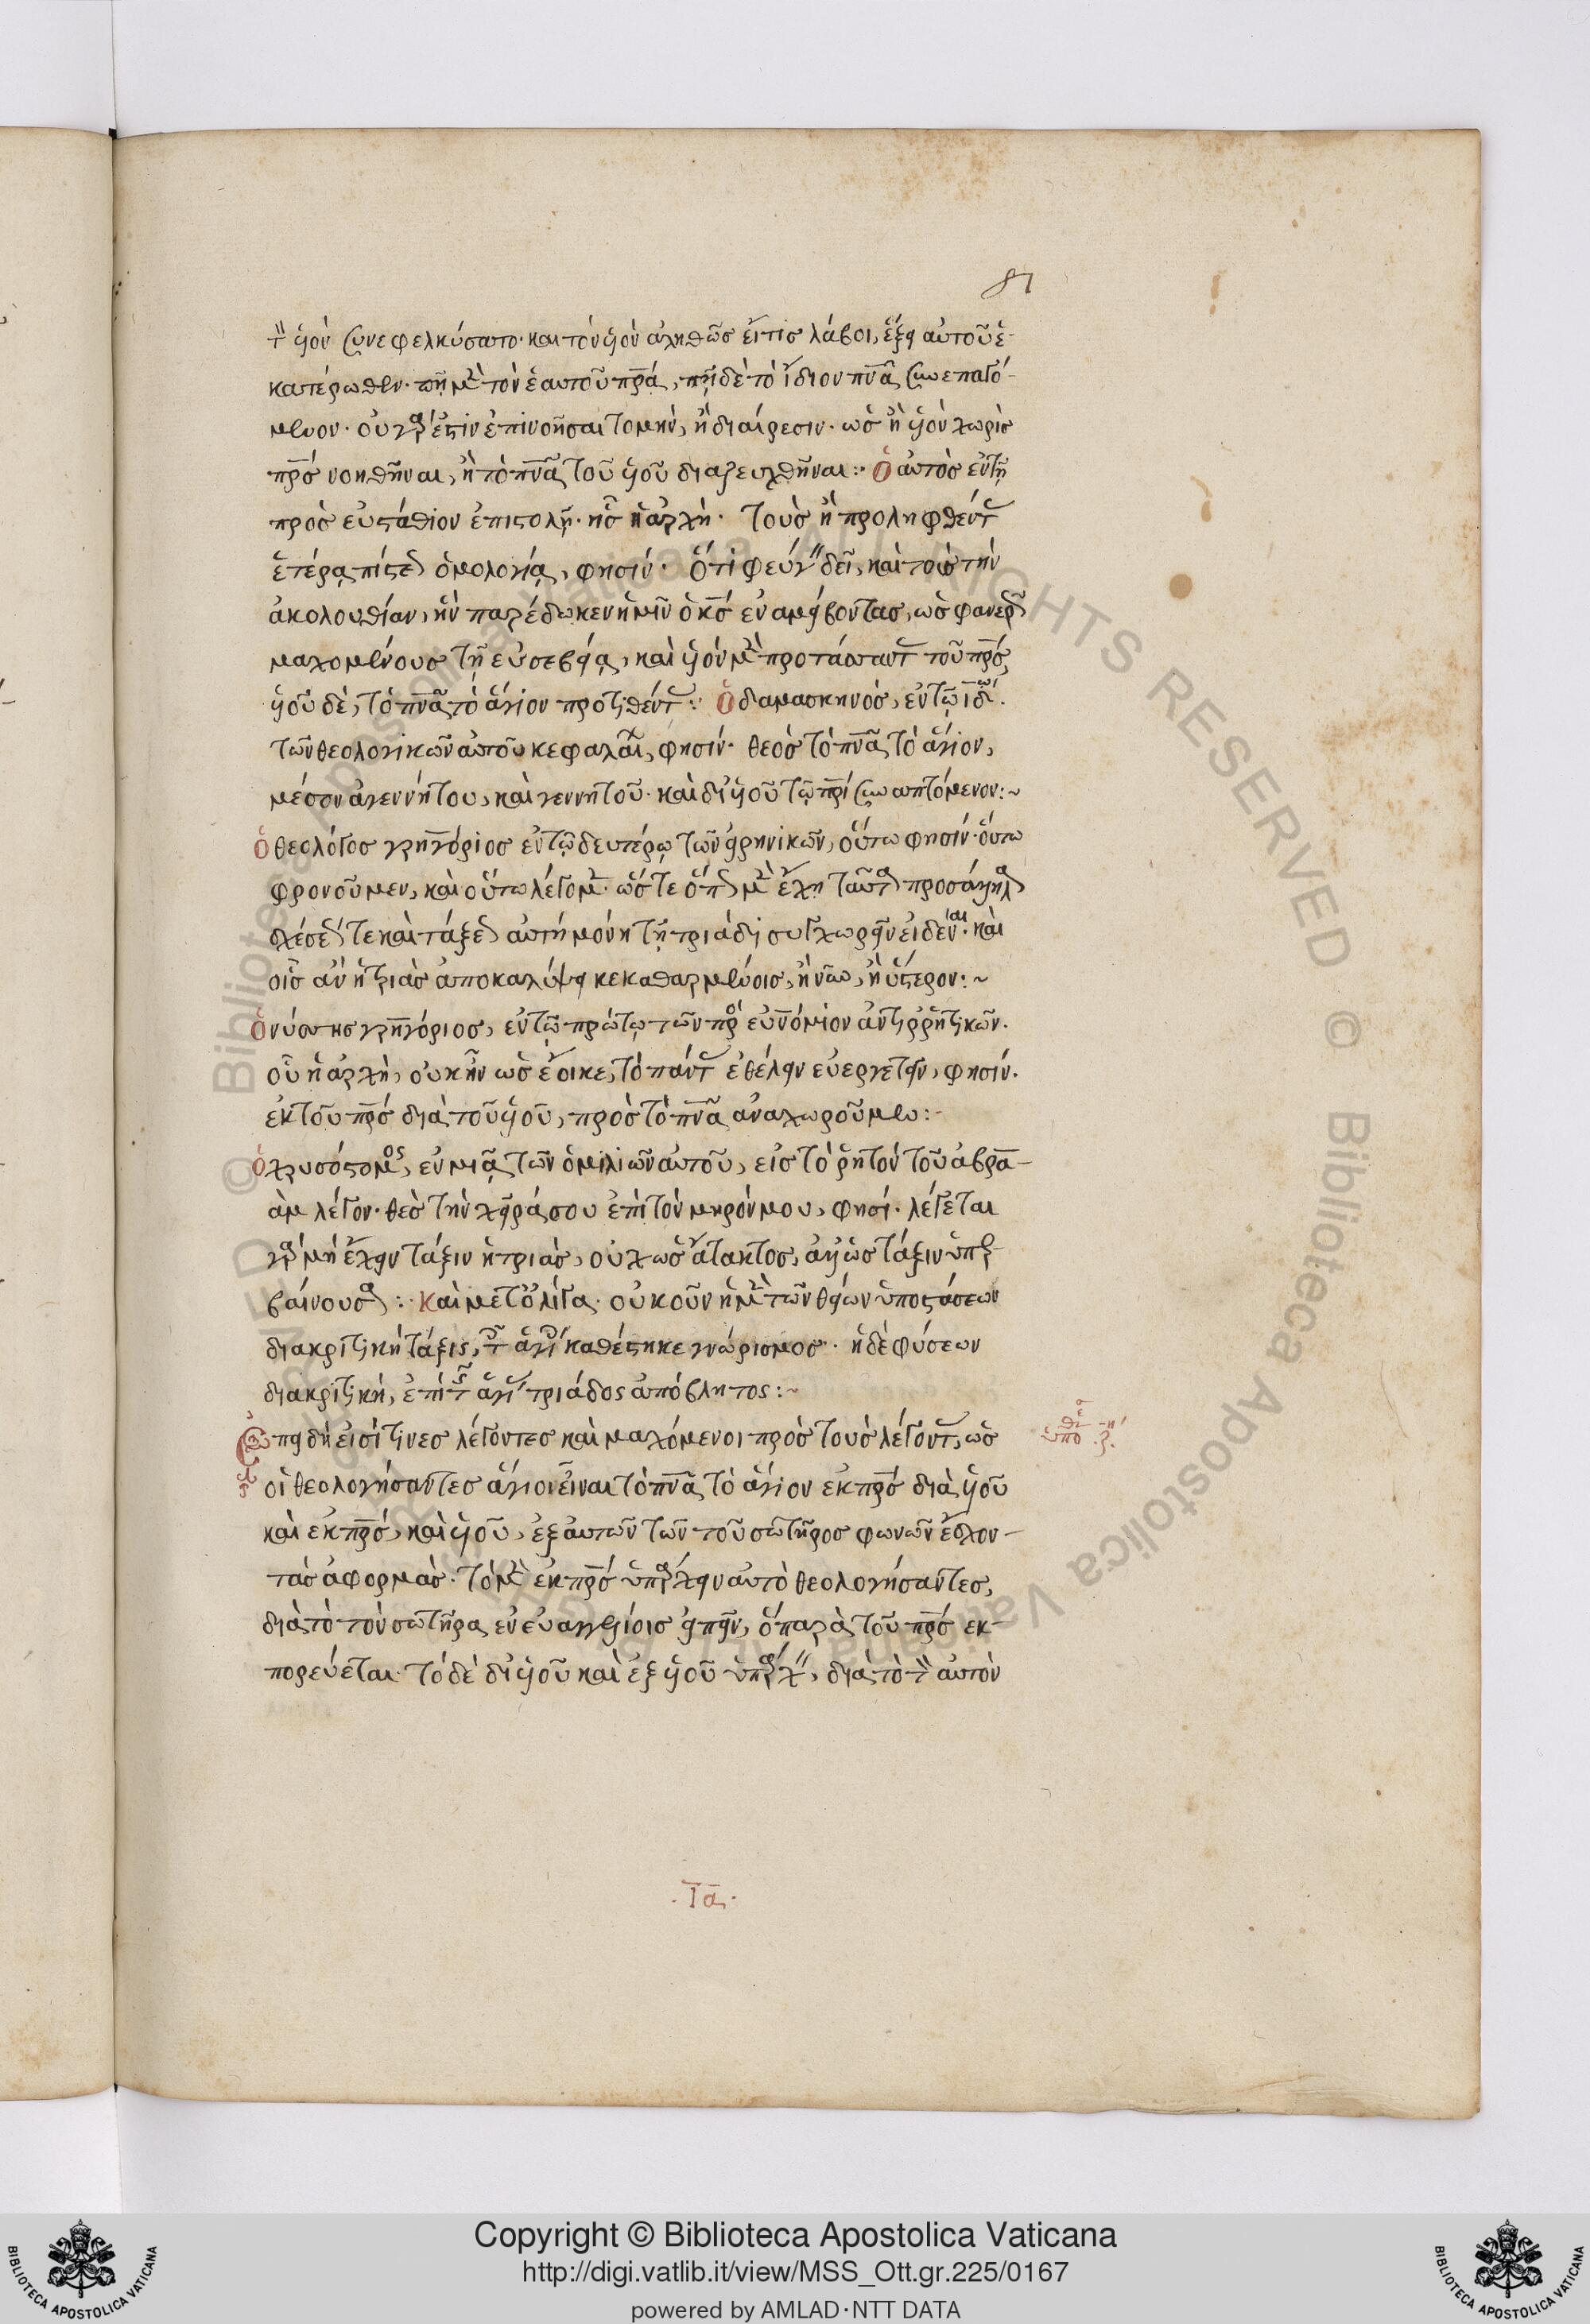 81
τὸν ὑὸν συνεφελκύσατο· καὶ τὸν ὑὸν ἀληθῶς εἴ τις λάβοι, ἕξει αὐτοῦ ἑ-
κατέρωθεν· πῇ μὲν τὸν ἑαυτοῦ πρ̅α, πῇ δὲ τὸ ἴδιον πν̅α συνεπαγό-
μενον· οὐ γάρ ἐστιν ἐπινοῆσαι τομὴν, ἢ διαίρεσιν· ὡς ἢ ὑὸν χωρὶς
πρ̅ς νοηθῆναι, ἢ τὸ πν̅α τοῦ ὑοῦ διαζευχθῆναι:· ὁ αὐτὸς ἐν τῇ
πρὸς εὐστάθιον ἐπιστολῇ· ἧς ἡ ἀρχὴ· τοὺς ἢ προληφθέντας
ἑτέρα πίστεως ὁμολογία, φησίν· ὅτι φεύγειν δεῖ, καὶ τοὺς τὴν
ἀκολουθίαν, ἣν παρέδωκεν ἡμῖν ὁ κ̅ς ἐναμείβοντας, ὡς φανερῶς
μαχομένους τῇ εὐσεβεία, καὶ ὑὸν μὲν προτάσσοντας τοῦ πρ̅ς,
ὑοῦ δὲ, τὸ πν̅α τὸ ἅγιον προτιθέντας: ὁ δαμασκηνός, ἐν τῶ ιδω.
τῶν θεολογικῶν αὐτοῦ κεφαλαίω, φησίν· θεὸς τὸ πν̅α τὸ ἅγιον,
μέσον ἀγεννήτου, καὶ γεννητοῦ· καὶ δι' ὑοῦ τῶ πρ̅ι συναπτόμενον:~
ὁ θεολόγος γρηγόριος ἐν τῶ δευτέρω τῶν εἰρηνικῶν, οὕτω φησίν· οὕτω
φρονοῦμεν, καὶ οὕτω λέγομεν· ὥστε ὅπως μὲν ἔχει ταῦτα πρὸς ἄλληλα
σχέσεώς τε καὶ τάξεως αὐτῇ μόνη τῇ τριάδι συγχωρεῖν εἰδέναι· καὶ
οἷς ἂν ἡ τριὰς ἀποκαλύψει κεκαθαρμένοις, ἢ νῦν, ἢ ὕστερον:~
ὁ νύσσης γρηγόριος, ἐν τῶ πρώτω τῶν πρὸς εὐνόμιον ἀντιῤῥητικῶν.
οὗ ἡ ἀρχὴ, οὐκ ἦν ὡς ἔοικε, τὸ πάντας ἐθέλειν εὐεργετεῖν, φησίν.
ἐκ τοῦ πρ̅ς διὰ τοῦ ὑοῦ, πρὸς τὸ πν̅α ἀναχωροῦμεν:-
ὁ χρυσόστομος, ἐν μιᾶ τῶν ὁμιλιῶν αὐτοῦ, εἰς τὸ ῥητὸν τοῦ ἀβρα-
ὰμ λέγον· θὲς τὴν χεῖρά σου ἐπὶ τὸν μηρόν μου, φησί· λέγεται
γὰρ μὴ ἔχειν τάξιν ἡ τριὰς, οὐχ ὡς ἄτακτος, ἀλλ' ὡς τάξιν ὑπερ-
βαίνουσα:· καὶ μετ' ὀλίγα· οὐκοῦν ἡ μὲν τῶν θείων ὑποστάσεων
διακριτικὴ τάξις, τῶν ἁγίων καθέστηκε γνώρισμος· ἡ δὲ φύσεων
διακριτικὴ, ἐπὶ τῆς ἁγίας τριάδος ἀπόβλητος:~
Ἐπεὶ δὴ εἰσί τινες λέγοντες καὶ μαχόμενοι πρὸς τοὺς λέγοντας, ὡς
οἱ θεολογήσαντες ἅγιοι εἶναι τὸ πν̅α τὸ ἅγιον ἐκ πρ̅ς διὰ ὑοῦ
καὶ ἐκ πρ̅ς, καὶ ὑοῦ, ἐξ αὐτῶν τῶν τοῦ σωτῆρος φωνῶν ἔσχον
τὰς ἀφορμὰς· τὸ μὲν ἐκ πρ̅ς ὑπάρχειν αὐτὸ θεολογήσαντες,
διὰ τὸ τὸν σωτῆρα ἐν εὐαγγελίοις εἰπεῖν, ὃ παρὰ τοῦ πρ̅ς ἐκ-
πορεύεται· τὸ δὲ δι' ὑοῦ καὶ ἐξ ὑοῦ ὑπάρχειν, διὰ τὸ τὸν αὐτὸν
·ια·
Copyright © Biblioteca Apostolica Vaticana
http://digi.vatlib.it/view/MSS_Ott.gr.225/0167
powered by AMLAD·NTT DATA
BIBLIOTECA APOSTOLICA VATICANA
BIBLIOTECA APOSTOLICA VATICANA